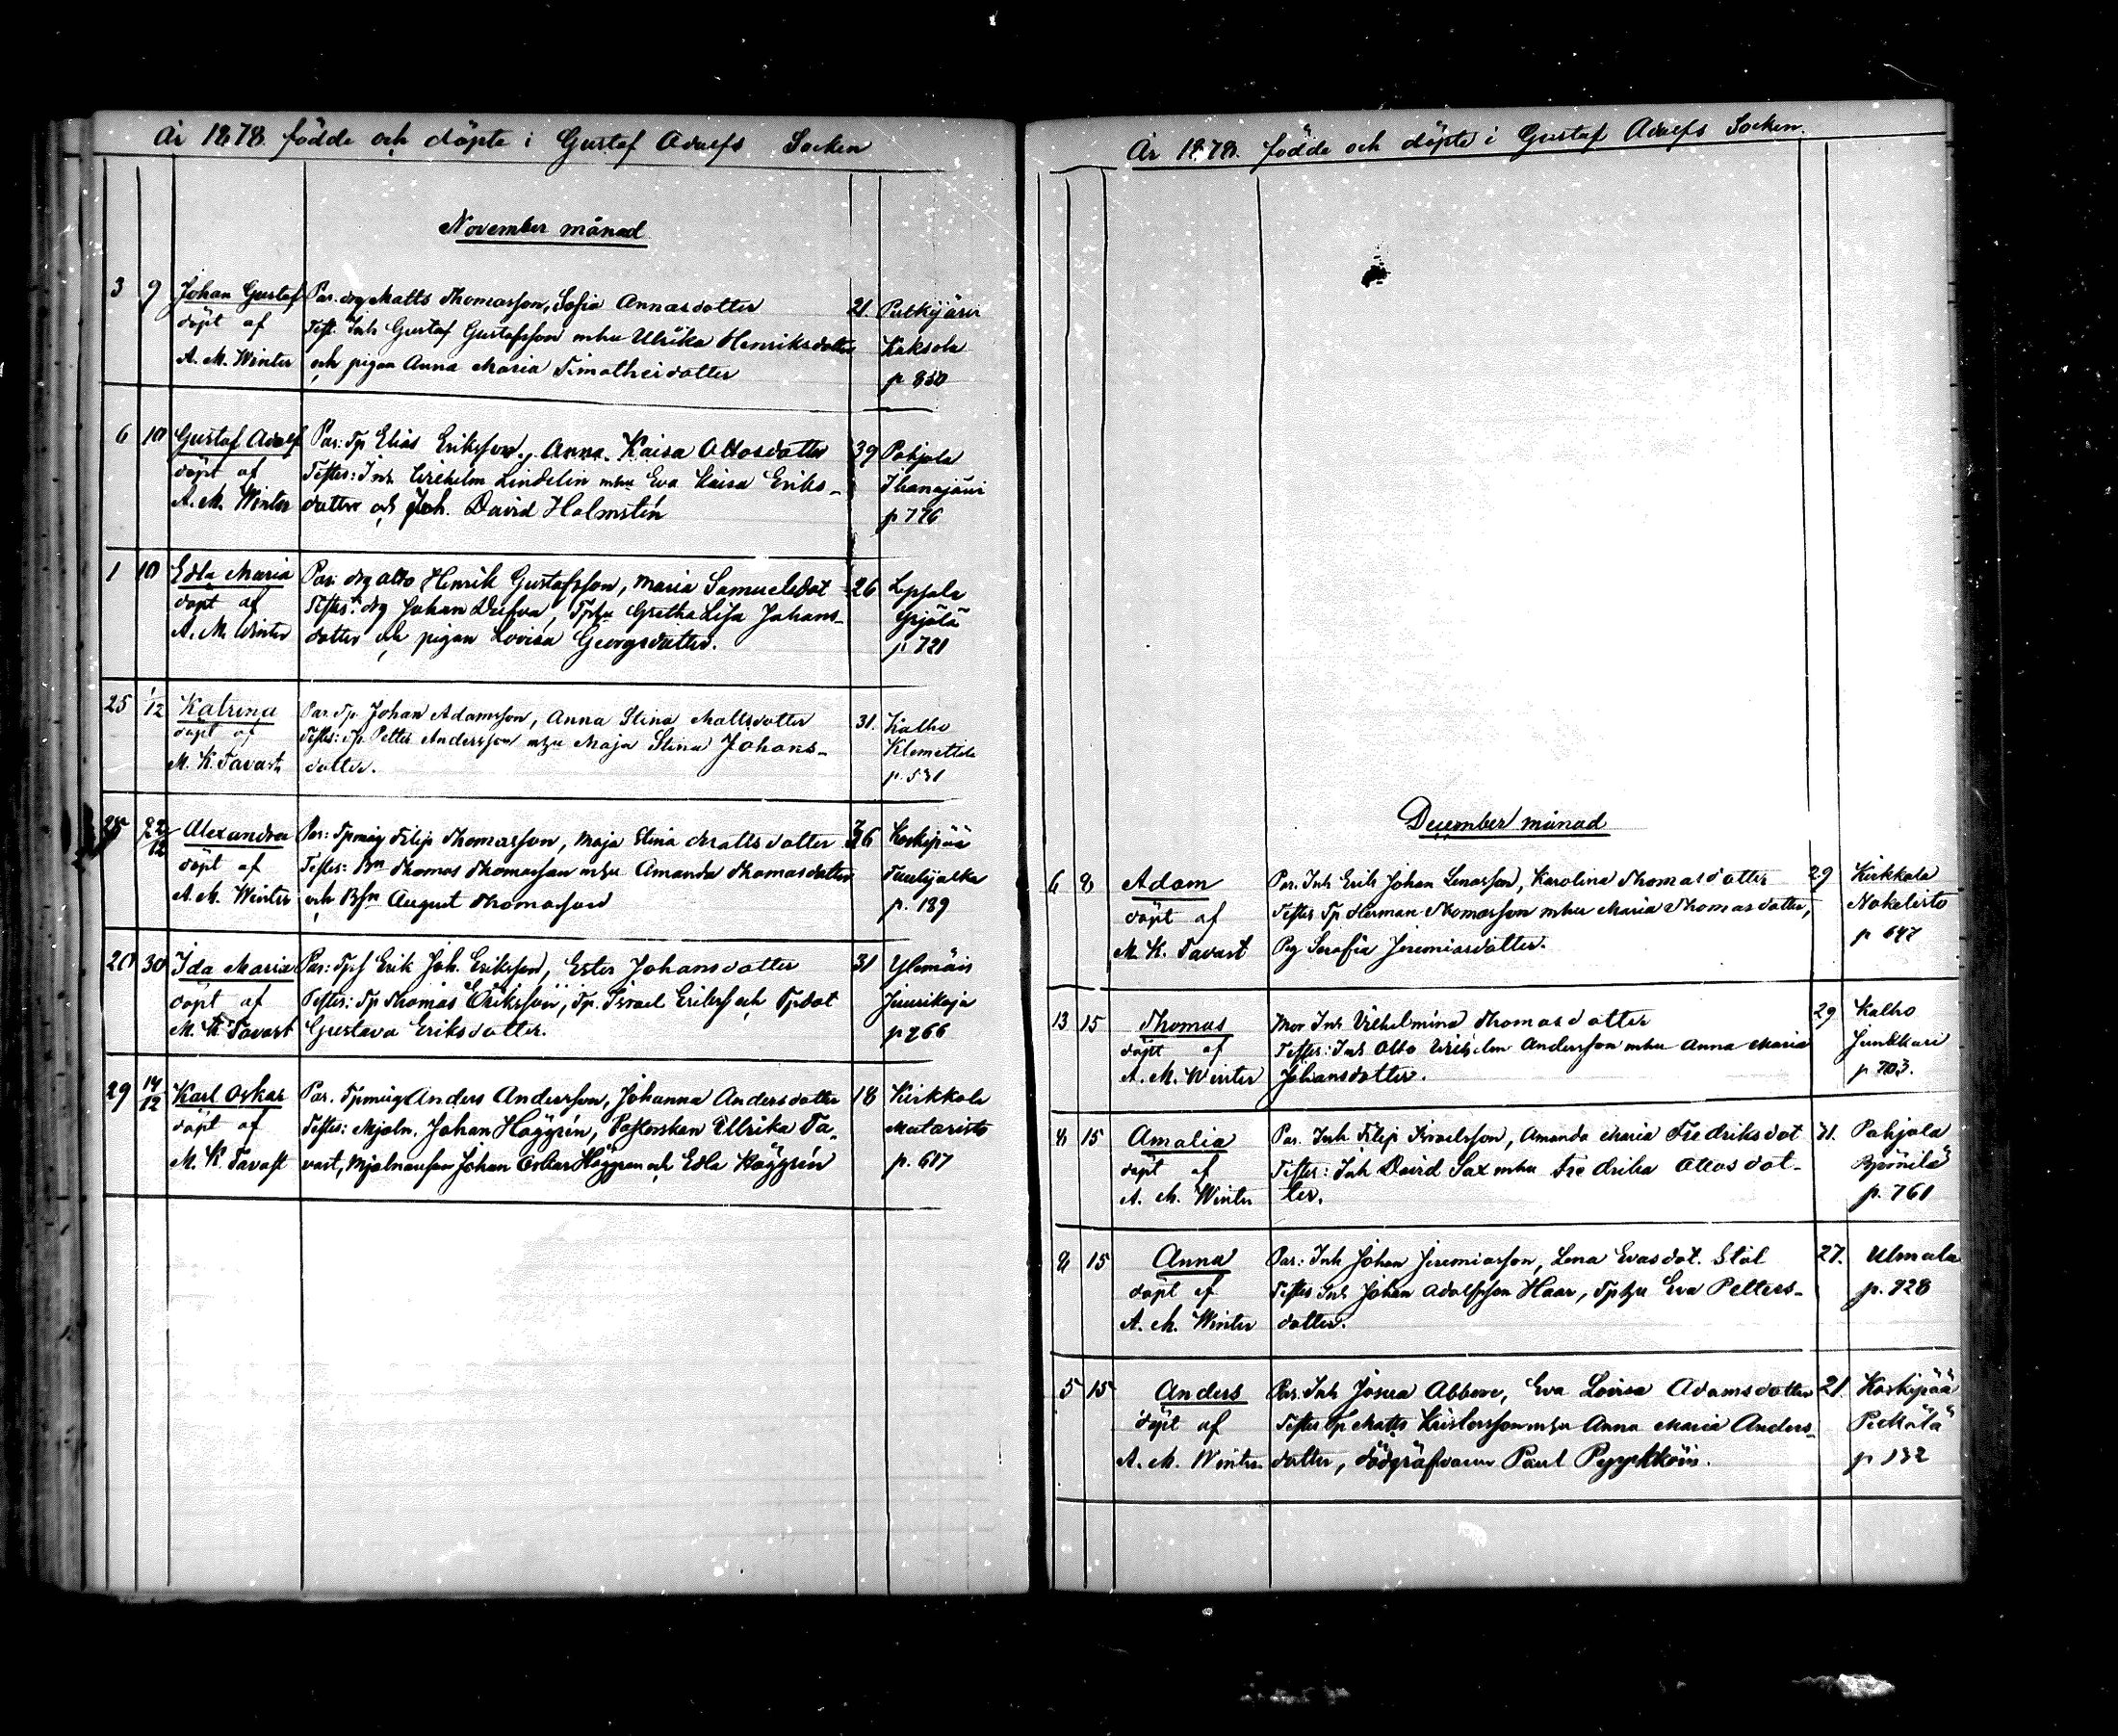 År 1878. födde och döpte i Gustaf Adolfs Socken
November månad
3 9 Johan Gustaf Par. drg Matts Thomasson, Sofia Annasdotter 21. Putkijärvi
döpt af Test. Inh Gustaf Gustafsson mhu Ulrika Henriksdotter Kaksola
A. M. Winter och pigan Anna Maria Timotheidotter p 850
6 10 Gustaf Adolf Par: Tp Elias Eriksson, Anna Kaisa Ottosdotter 39 Pohjola
döpt af Testes: Inh Wilhelm Lindelin mhu Eva Kaisa Eriks- Ihanajärvi
A. M. Winter dotter och Joh. David Holmstén p 776
1 10 Edla Maria Par: drg Otto Henrik Gustafsson, Maria Samuelsdot 26 Lepsala
döpt af Testes: drg Johan Dufva, Tphu Gretha Lisa Johans- Yrjölä
A. M. Winter dotter och pigan Lovisa Georgsdotter. p. 721
25 1/12 Katrina Par. Tp. Johan Adamsson, Anna Stina Mattsdotter 31. Kalho
döpt af Testes: Tp. Petter Andersson mhu Maja Stina Johans- Klemettilä
M. K. Tavast dotter. p. 531
22/12 Alexandra Par: Tpmåg Filip Thomasson, Maja Stina Mattsdotter Koskipää
döpt af Testes: Bn Thomas Thomasson mhu Amanda Thomasdotter Tuulijalka
A. M. Winter och Bsn August Thomasson p. 189
20 30 Ida Maria Par: Tps Erik Joh. Eriksson, Ester Johansdotter 31 Ylemäis
döpt af Testes: Tp Thomas Eriksson, Tp. Israel Eriksson och Tpdot Juurikoja
M. K Tavast Gustava Eriksdotter. p 266
29 14/12 Karl Oskar Par. Tpmåg Anders Andersson, Johanna Andersdotter 18 Kirkkola
döpt af Testes: Mjoln. Johan Häggrén, Pastorskan Ullrika Ta- Mataristo
M. K. Tavast vast, Mjolnareson Johan Oskar Häggren och Edla Häggrén p. 617
År 1878. födde och döpte i Gustaf Adolfs Socken.
December månad
6 8 Adam Par. Inh Erik Johan Lenasson, Karolina Thomasdotter 29 Kirkkola
döpt af Testes Tp Herman Thomasson mhu Maria Thomasdotter, Nokelisto
M. K. Tavast Pig Serafia Jeremiasdotter. p 647
13 15 Thomas Mor Inh Vilhelmina Thomasdotter 29 Kalho
döpt af Testes: Inh Otto Wilhelm Andersson mhu Anna Maria Junkkari
A. M. Winter Johansdotter. p 703.
8 15 Amalia Par. Inh Filip Israelsson, Amanda Maria Fredriksdot 31. Pohjola
döpt af Testes: Inh David Sax mhu Fredrika Ottosdot-
A. M. Winter ter. p. 761
8 15 Anna Par: Inh Johan Jeremiasson, Lena Evasdot. Stål 27. Ulmala
döpt af Testes Inh Johan Adolfsson Haar, Tphu Eva Petters- p. 928
A. M. Winter dotter.
5 15 Anders Par. Inh Josua Abbore, Eva Lovisa Adamsdotter 21 Koskipää
döpt af Testes Tp Matts Kristersson mhu Anna Maria Anders- Pekkola
A. M. Winter dotter, dödgräfvaren Paul Pyykköin. p 132